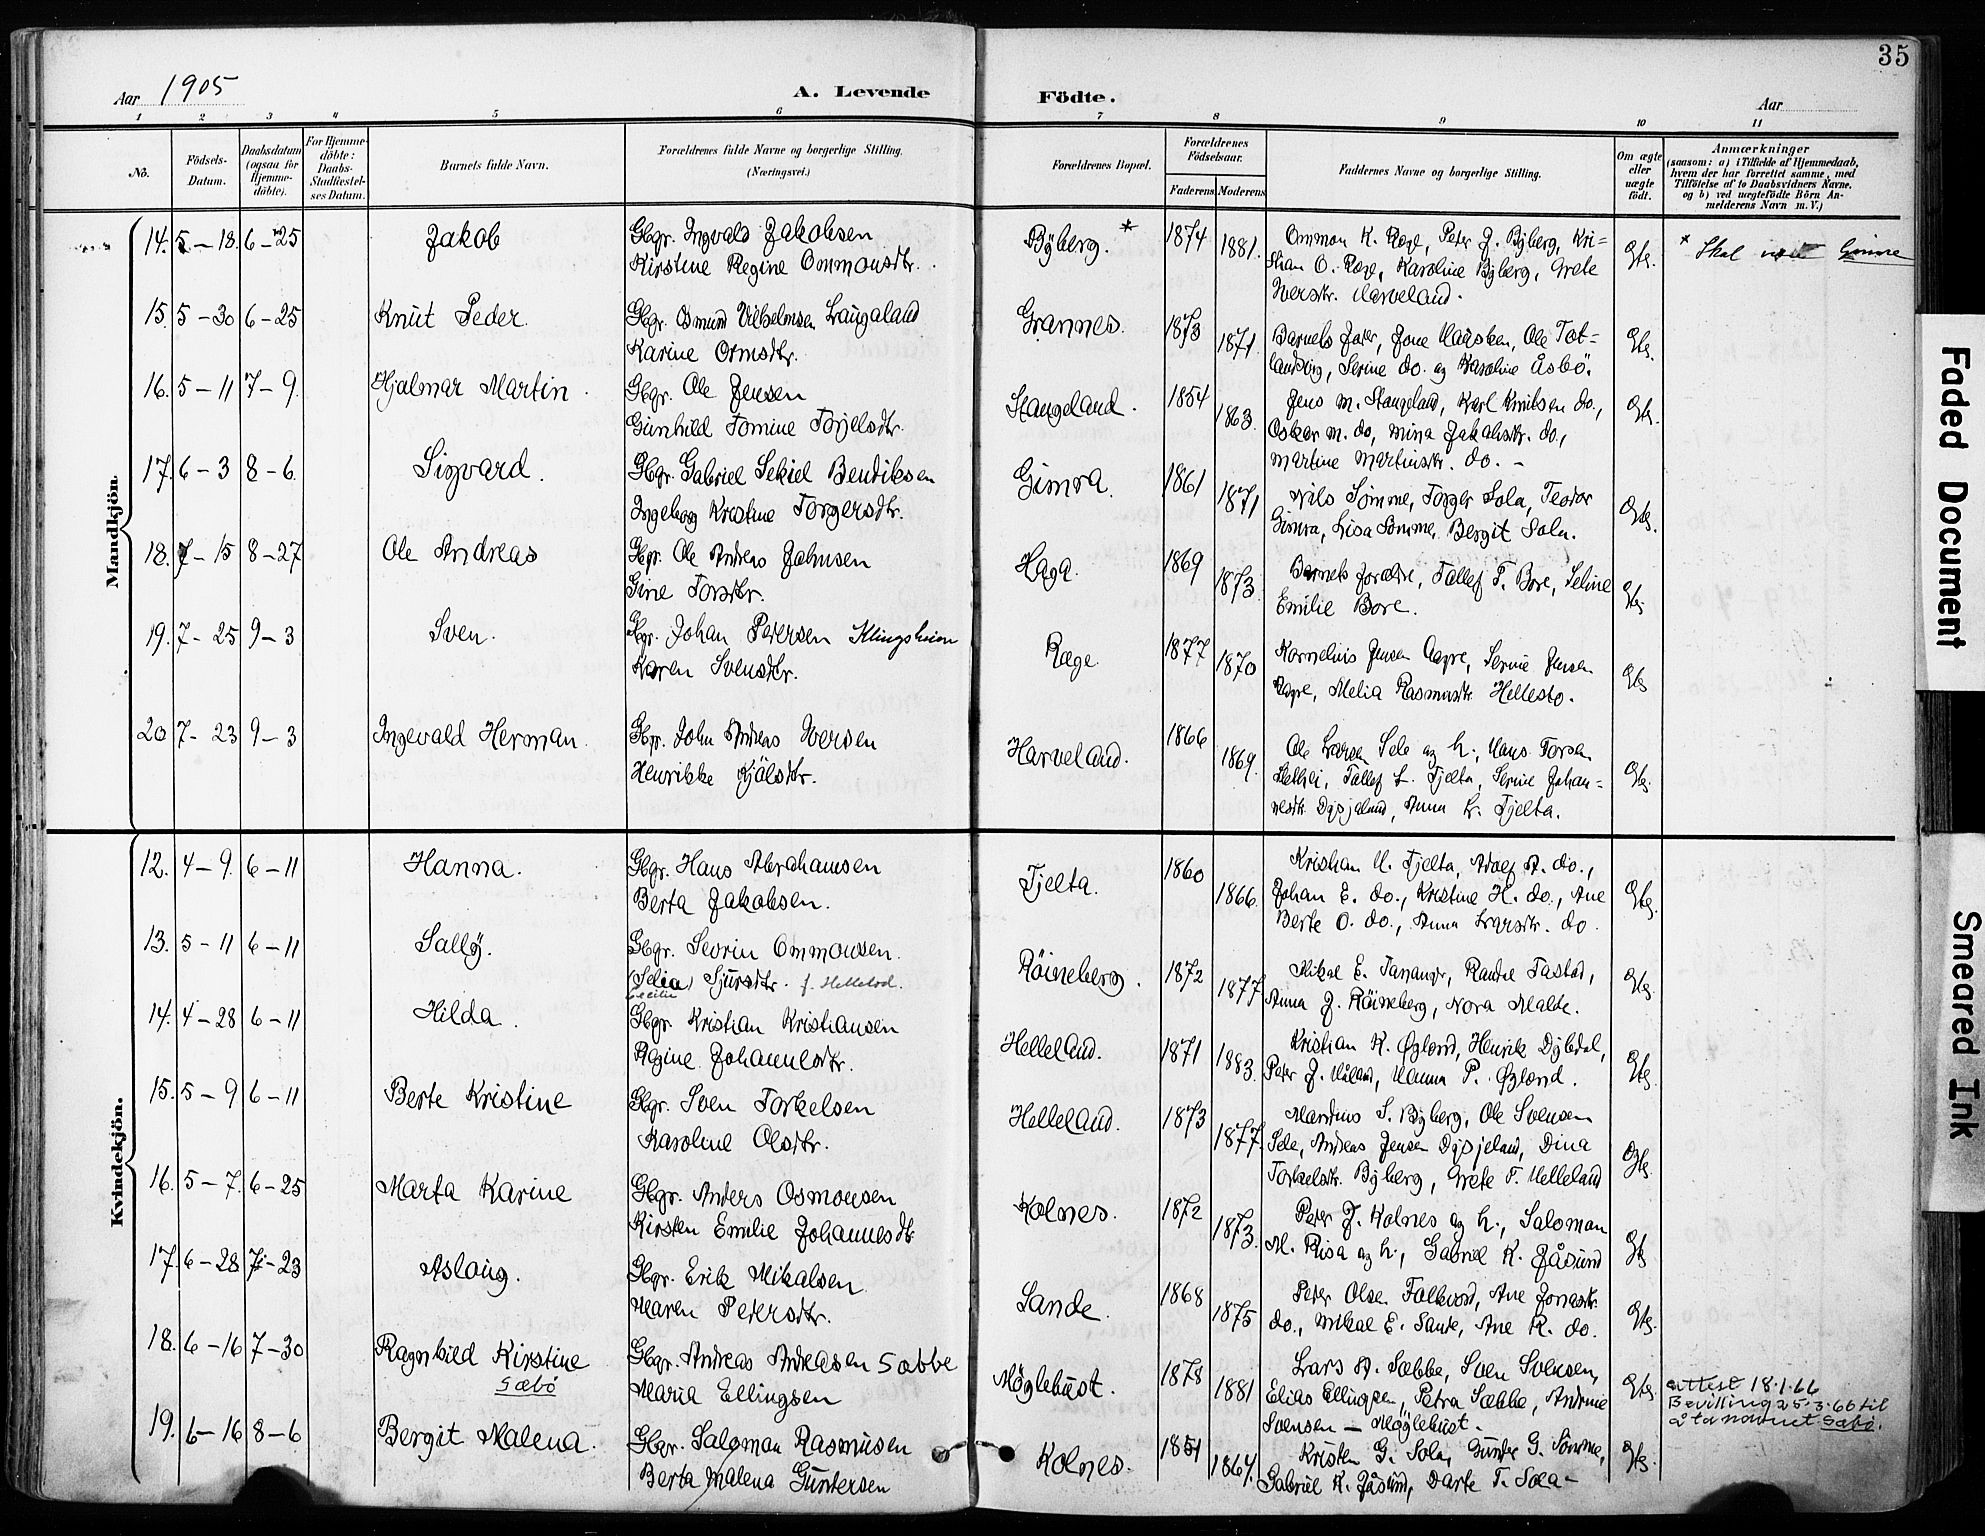 35
Aar 1905
A. Levende Födte.
Aar
1 2 3 4 5 6 7 8 9 10 11
No.
Födsels-Datum.
Daabsdatum (ogsaa for Hjemmedöbte).
For Hjemmedöbte: Daabs-Stadfæstelses Datum.
Barnets fulde Navn.
Forældrenes fulde Navne og borgerlige Stilling. (Næringsvei.)
Forældrenes Bopæl.
Forældrenes Födselsaar.
Faderens Moderens
Faddernes Navne og borgerlige Stilling.
Om ægte eller uægte födt.
Anmærkninger
(saasom: a) i Tilfælde af Hjemmedaab, hvem der har forrettet samme, med Tilföielse af to Daabsvidners Navne, og b) ved uægtefödte Börn Anmelderens Navn m. V.)
Mandkjön.
14. 5-18 6-25 Jakob Gbgr. Ingvald Jakobsen Byberg.* 1874 Ommon K. Rege, Peter J. Byberg, Kri=
Kirstine Regine Ommonsdtr. 1881. stian O. Rege, Karoline Byberg, Grete Gte. * Skal være Gimre
Iversdtr. Harveland.
15. 5-30 6-25 Knut Peder. Gbgr. Osmund Vilhelmsen Laugaland Grannes. 1873
Karine Ormsdtr. 1871. Barnets Fader, Jone Haasken, Ole Tot= Gte.
landsvig, Serine do. og Karoline Åsbö.
16. 5-11 7-9. Hjalmar Martin. Gbgr. Ole Jensen Stangeland. 1854 Jens M. Stangeland, Karl Knutsen do.,
Gunhild Tomine Torjelsdtr. 1863. Oskar M. do, Mina Jakobsdtr. do., Gte.
Martine Martinsdtr. do. -
17. 6-3 8-6. Sigvard. Gbgr. Gabriel Sekiel Bendiksen Gimra. 1861
Ingeborg Kristine Torgersdtr. 1871 Nils Sømme, Torger Sola, Teodor Gte.
Gimra, Lisa Sømme, Bergit Sola.
18. 7-15 8-27 Ole Andreas Gbgr. Ole Andreas Jahnsen Haga. 1869
Gine Torsdtr. 1873. Barnets Forældre, Tollef T. Bore, Seline Gte.
Emilie Bore.
19. 7-25 9-3 Sven. Gbgr. Johan Petersen Klingsheim Ræge. 1877
Karen Svensdtr. 1870 Kornelius Jensen Ræge, Serine Jensen Gte
Ræge, Melia Rasmusdtr. Hellestø.
20 7-23 9-3 Ingevald Herman. Gbgr. John Andreas Iversen Harveland. 1866
Henrikke Kjölsdtr. 1869. Ole Larsen Sele og h., Hans Torsen Gte.
Tollef L. Tjelta, Serine Johan=
nesdtr. Dysjeland, Anna L. Tjelta.
Kvindekjön.
12. 4-9. 6-11 Hanna. Gbgr. Hans Abrahamsen Tjelta. 1860 Kristian H. Tjelta, Adolf A. do.,
Berta Jakobsen. 1866. Johan E. do., Kristine H. do., Ane Gte.
Berte O. do., Anna Larsdtr. do.
13. 5-11 6-11 Sally. Gbgr. Sevrin Ommonsen. Röineberg. 1872 Mikal E. Tananger, Rande Tastad, Gte.
(Selia) Sjursdtr. f. Hellebod. 1877. Anna J. Röineberg, Nora Malde.
Cecilie
14. 4-28 6-11 Hilda. Gbgr. Kristian Kristiansen Helleland. 1871 Kristian K. Øglænd, Henrik Dybdal,
Regine Johannesdtr. 1883. Peter J. Håland, Hanna P. Øglænd. Gte.
15. 5-9 6-11 Berte Kristine Gbgr. Sven Torkelsen Helleland. 1873 Mardius S. Byberg, Ole Svensen
Karoline Olsdtr. 1877. Sele, Andreas Jensen Dysjeland, Dina Gte.
Torkelsdtr. Byberg, Grete T. Helleland
16. 5-7. 6-25 Marta Karine Gbgr. Anders Osmonsen Kolnes. 1872 Peter J. Kolnes og h., Saloman
Kirsten Emilie Johannesdtr 1873. M. Risa og h., Gabriel K. Jåsund Gte
17. 6-28 7-23 Aslaug. Gbgr. Erik Mikalsen Sande. 1868 Peter Olsen Folkvord, Ane Jonasdtr.
Maren Petersdtr. 1875 do., Mikal E. Sande, Ane R. do. Gte.
18. 6-16 7-30 Ragnhild Kirstine Gbgr. Andreas Andreasen Sæbbe Möglebust. 1878 Lars A. Sæbbe, Sven Svensen,
Sæbö Maria Ellingsen 1881 Elias Ellingsen, Petra Sæbbe, Andrine Gte. attest 18.1.66
Svensen - Möglebust. Bevilling 25.3.66 til
å ta navnet Sæbö.
19. 6-16 8-6 Bergit Malena. Gbgr. Salomon Rasmusen Kolnes. 1851 Kristen G. Sola, Gunder G. Sömme, Gte.
Berta Malena Guntersen 1864. Gabriel K. Jåsund, Dorte T. Sola-
Faded Document
Smeared Ink